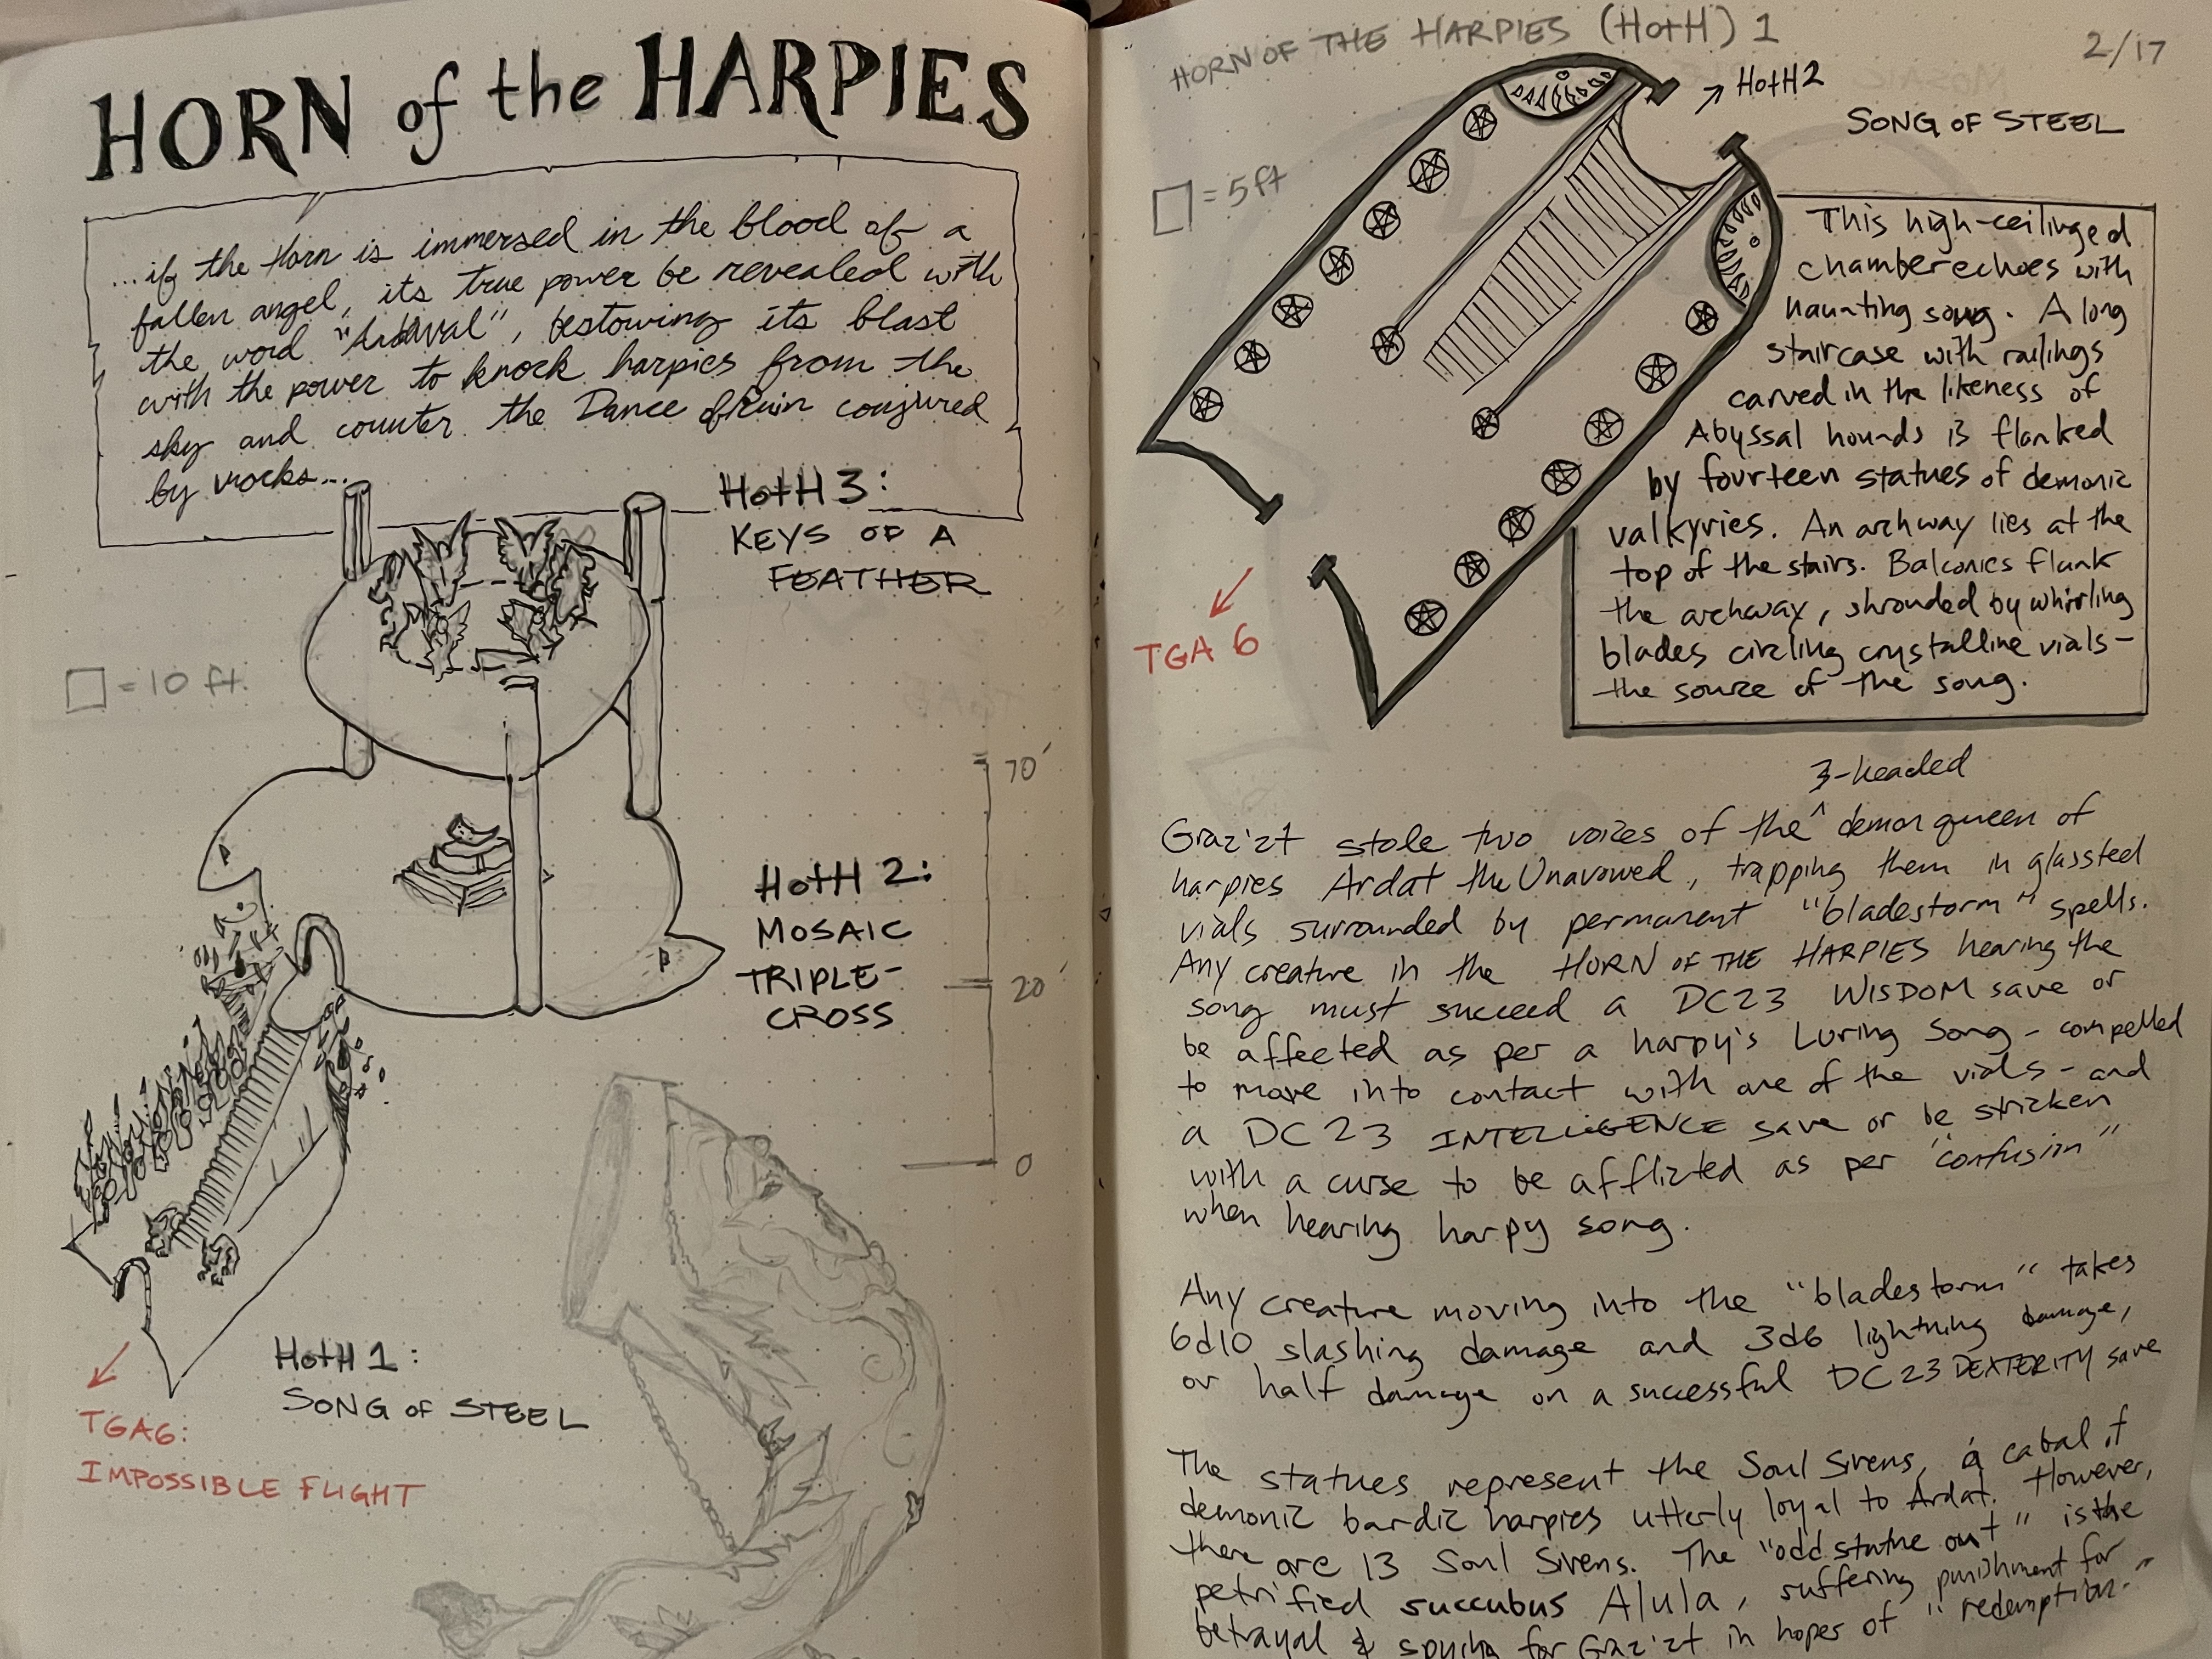 HORN of the HARPIES
...if the Horn is immersed in the blood of a
fallen angel, its true power be revealed with
the word "Ardwal", bestowing its blast
with the power to knock harpies from the
sky and counter the Dance of Ruin conjured
by vrocks...
HotH 3:
KEYS OF A
FEATHER
= 10 ft.
70'
20'
0
HotH 2:
MOSAIC
TRIPLE-
CROSS
HotH 1:
SONG OF STEEL
TGA6:
IMPOSSIBLE FLIGHT
HORN OF THE HARPIES (HotH) 1
2/17
HotH2
SONG OF STEEL
= 5ft
TGA 6
This high-ceilinged
chamber echoes with
haunting song. A long
staircase with railings
carved in the likeness of
Abyssal hounds is flanked
by fourteen statues of demonic
valkyries. An archway lies at the
top of the stairs. Balconies flank
the archway, shrouded by whirling
blades circling crystalline vials-
the source of the song.
3-headed
Graz'zt stole two voices of the ^ demon queen of
harpies Ardat the Unavowed, trapping them in glassteel
vials surrounded by permanent "bladestorm" spells.
Any creature in the HORN OF THE HARPIES hearing the
song must succeed a DC23 WISDOM save or
be affected as per a harpy's Luring Song - compelled
to move into contact with one of the vials - and
a DC 23 INTELLIGENCE save or be stricken
with a curse to be afflicted as per "confusion"
when hearing harpy song.
Any creature moving into the "bladestorm" takes
6d10 slashing damage and 3d6 lightning damage,
or half damage on a successful DC23 DEXTERITY save
The statues represent the Soul Sirens, a cabal of
demonic bardic harpies utterly loyal to Ardat. However,
there are 13 Soul Sirens. The "odd statue out" is the
petrified succubus Alula, suffering punishment for
betrayal & spying for Graz'zt in hopes of "redemption."